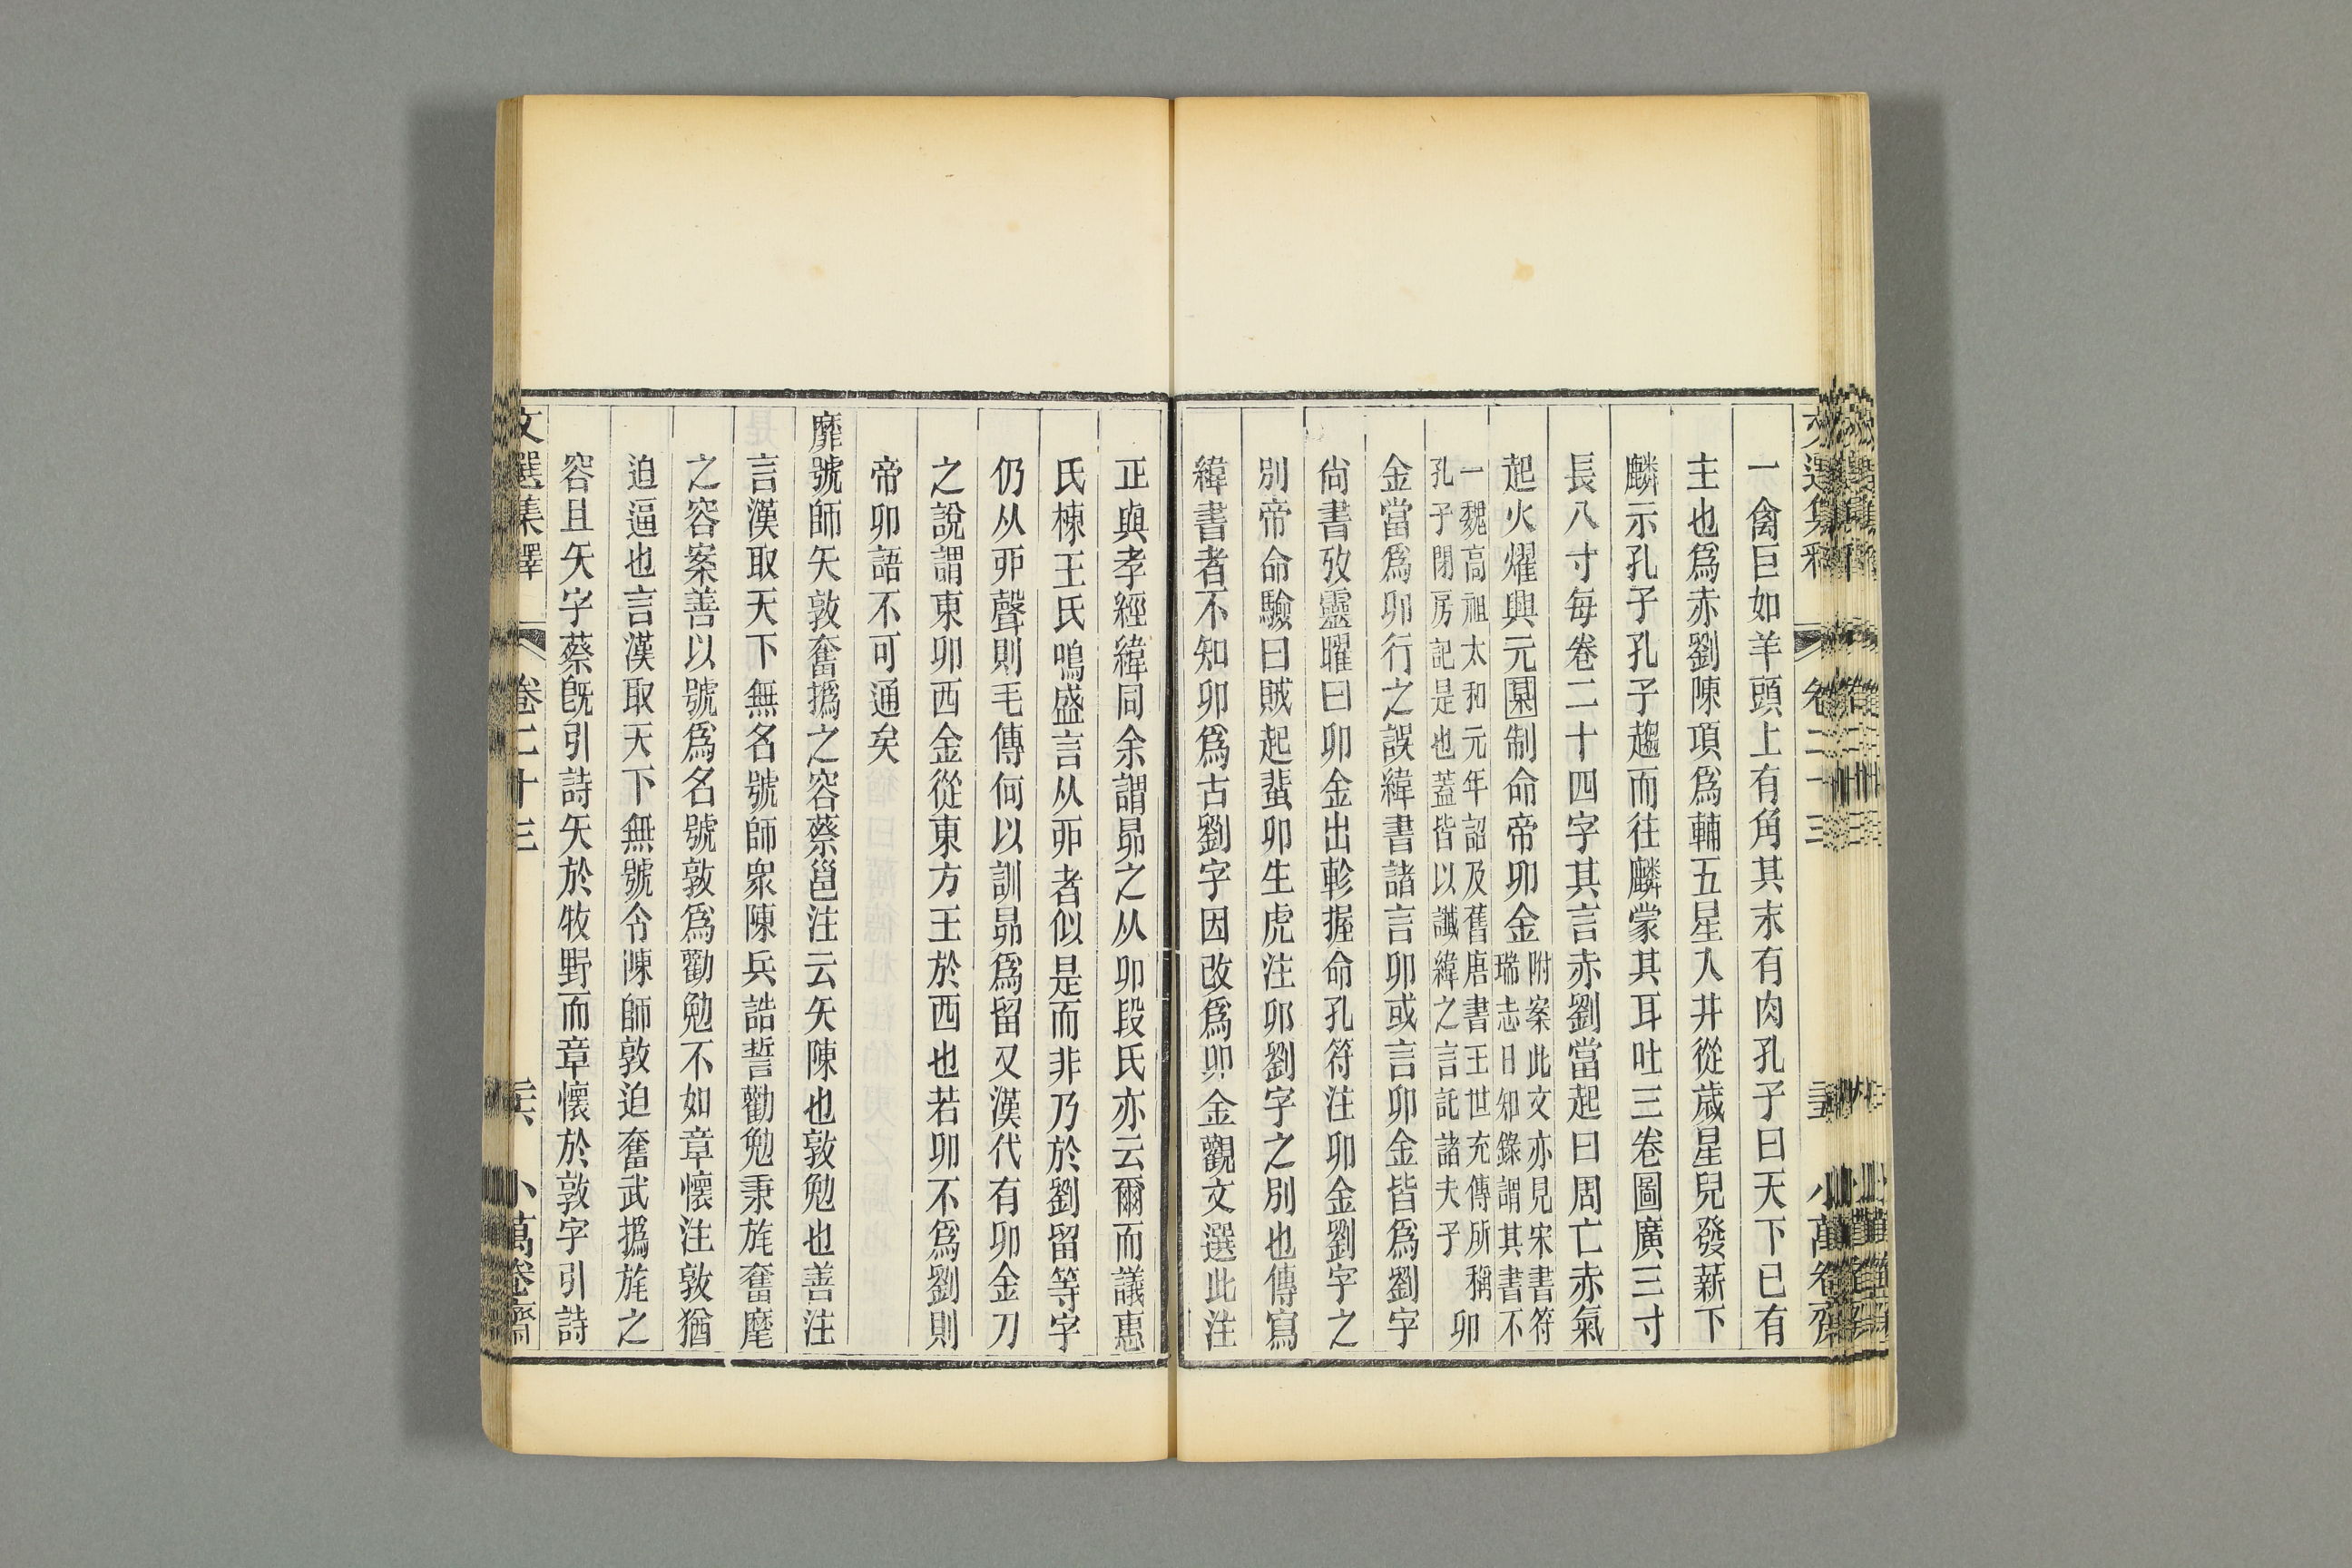 一禽巨如羊頭上有角其末有肉孔子曰天下已有
主也爲赤劉陳項爲輔五星入井從歲星兒發薪下
麟示孔子孔子趨而往麟蒙其耳吐三卷圖廣三寸
長八寸每卷二十四字其言赤劉當起曰周亡赤氣
起火燿興元制命帝卯金
附案此文亦見宋書符
瑞志日知錄謂其書不
一魏高祖太和元年詔及舊唐書王世充傳所稱
孔子閉房記是也蓋皆以讖緯之言託諸夫子
卯
金當爲卯行之誤緯書諸言卯或言卯金皆爲劉字
尙書攷靈曜曰卯金出軫握命孔符注卯金劉字之
別帝命驗曰賊起蜚卯生虎注卯劉字之別也傳寫
緯書者不知卯爲古劉字因改爲卯金觀文選此注
正與孝經緯同余謂昴之从卯段氏亦云爾而議惠
氏棟王氏鳴盛言从丣者似是而非乃於劉留等字
仍从丣聲則毛傳何以訓昴爲留又漢代有卯金刀
之說謂東卯西金從東方王於西也若卯不爲劉則
帝卯語不可通矣
靡號師矢敦奮撝之容蔡邕注云矢陳也敦勉也善注
言漢取天下無名號師眾陳兵誥誓勸勉秉旄奮麾
之容案善以號爲名號敦爲勸勉不如章懷注敦猶
迫逼也言漢取天下無號令陳師敦迫奮武撝旄之
容且矢字蔡旣引詩矢於牧野而章懷於敦字引詩
文選集釋 卷二十三 小萬卷齋